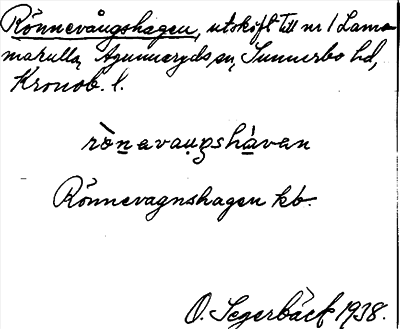 Rönnevångshagen, utskift till nr 1 Lamma-
makulla, Agunnaryds sn, Sunnerbo hd,
Kronob. l.
rönavaugshàvan
Rönnevagnshagen kb.
O. Segerbäck 1938.